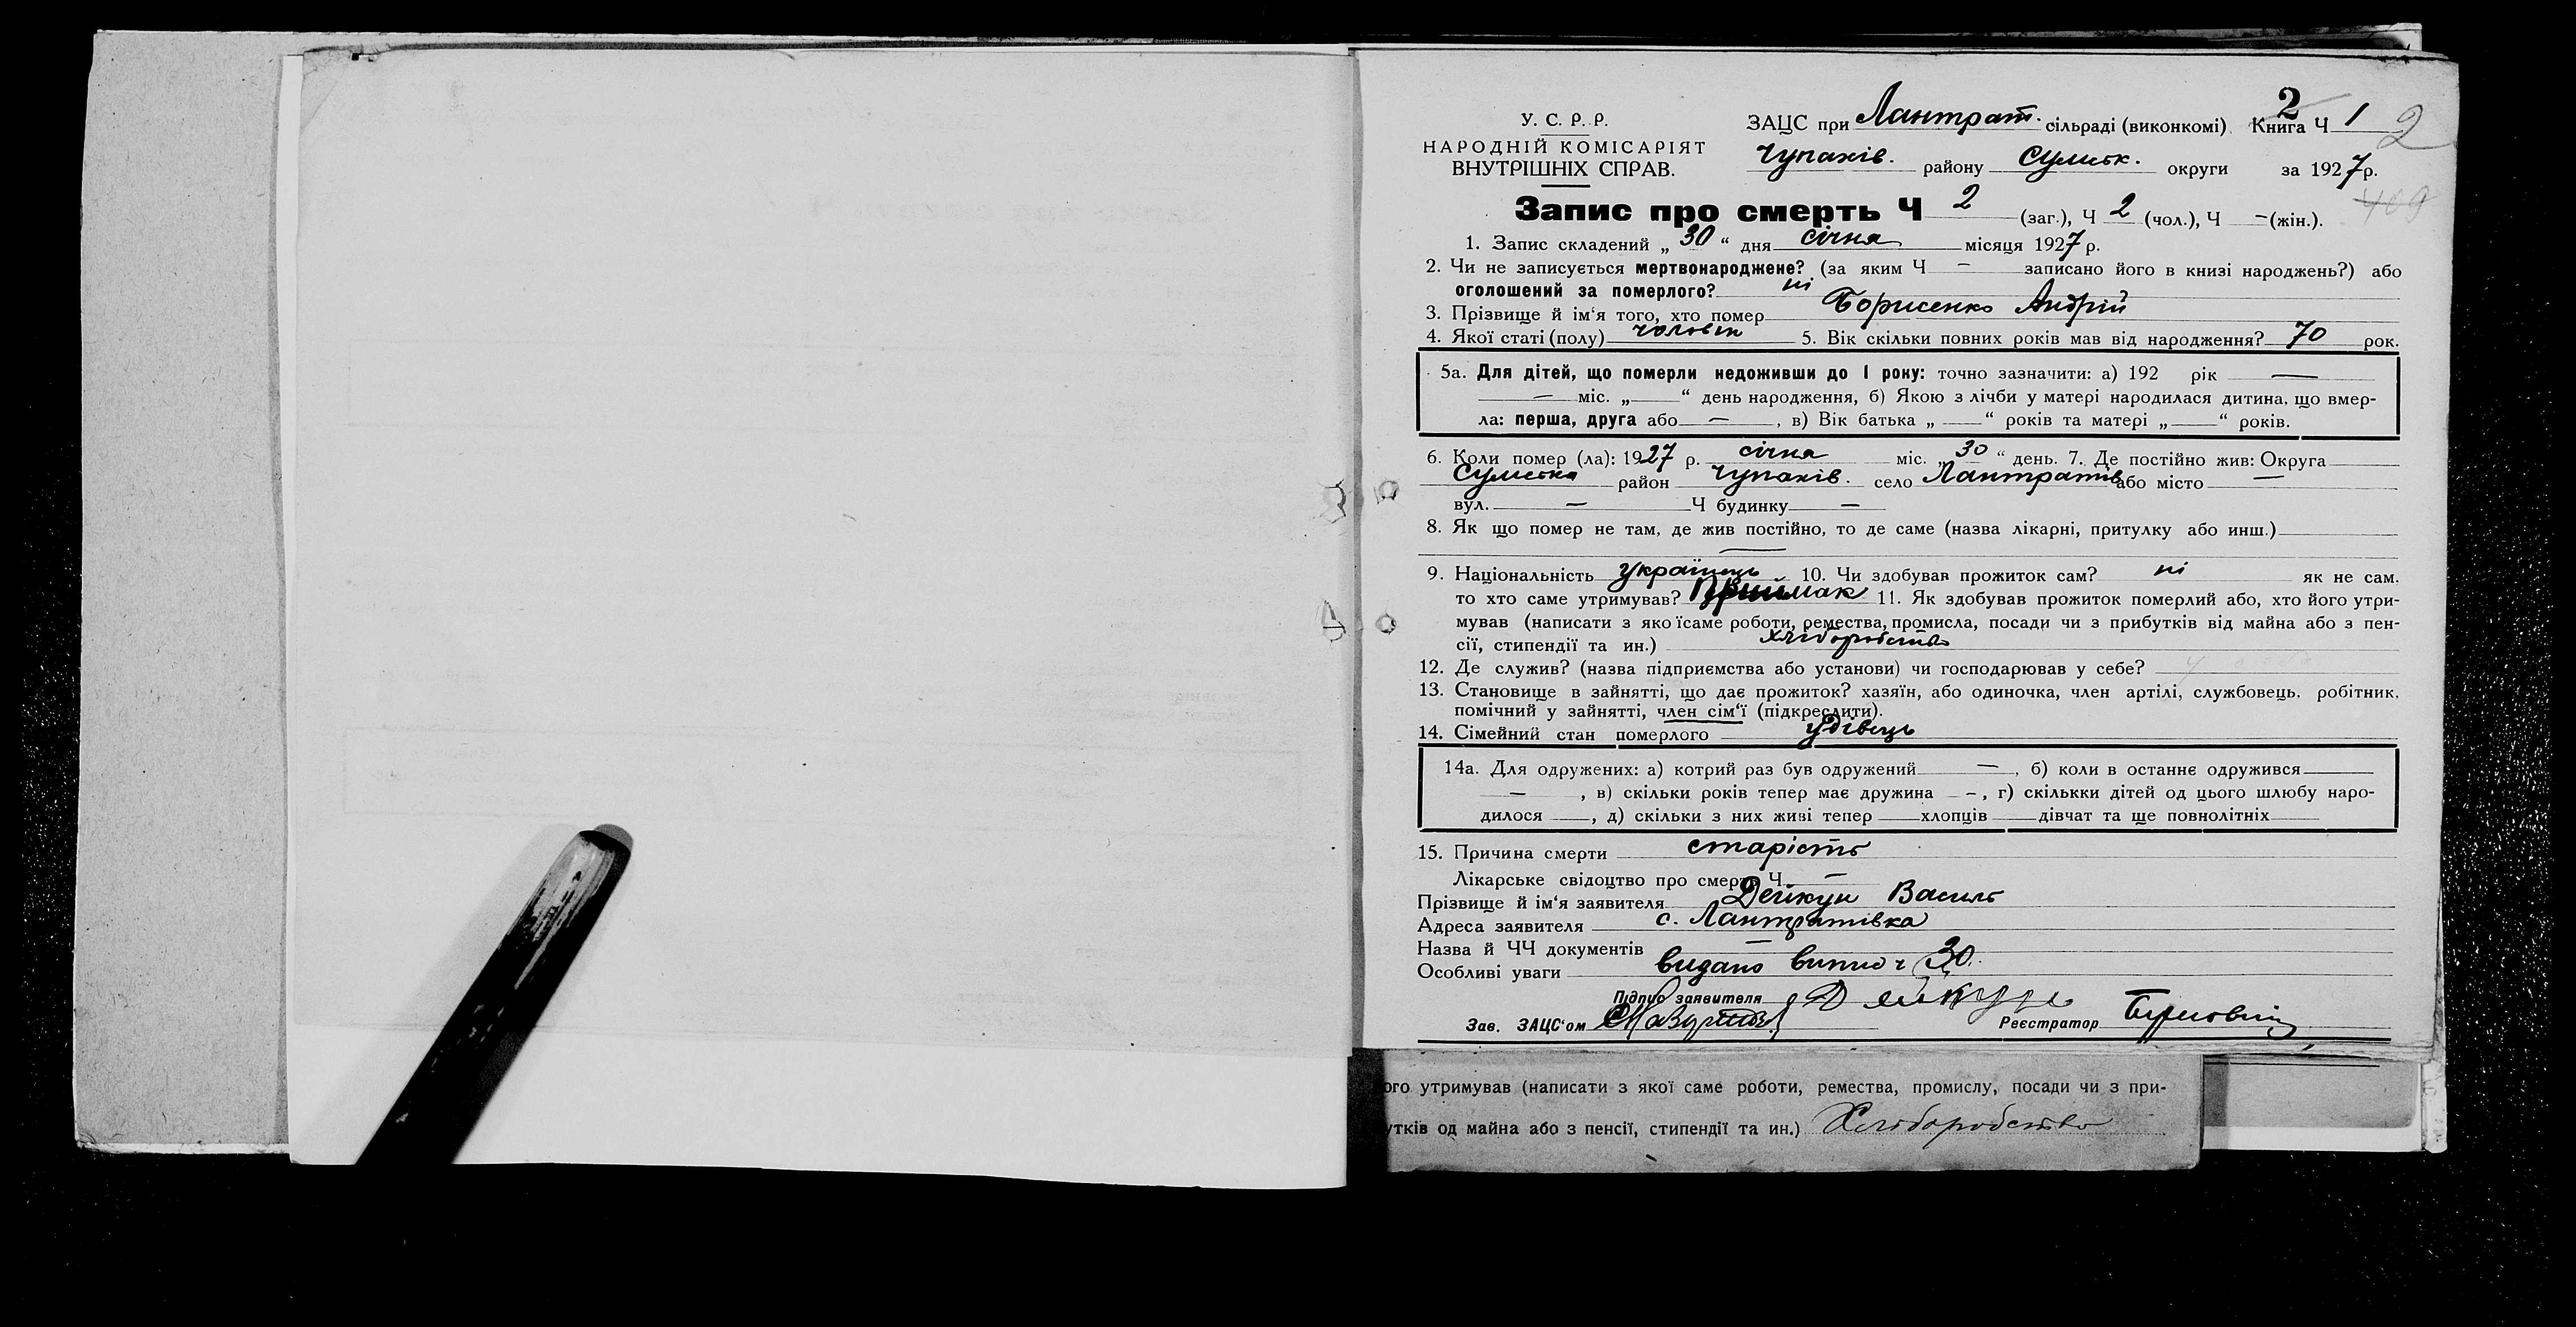 2
У. С. Р. Р.
ЗАЦС при Лантрат. сільраді (виконкомі) Книга Ч 1 2
НАРОДНІЙ КОМІСАРІЯТ
ВНУТРІШНІХ СПРАВ.
Чупахів. району Сумськ. округи за 1927 р.
409
Запис про смерть Ч 2 (заг.), Ч 2 (чол.), Ч — (жін.).
1. Запис складений „ 30 “ дня січня місяця 1927 р.
2. Чи не записується мертвонароджене? (за яким Ч — записано його в книзі народжень?) або
оголошений за померлого? ні
3. Прізвище й ім‘я того, хто помер Борисенко Андрій
4. Якої статі (полу) чоловік 5. Вік скільки повних років мав від народження? 70 рок.
5а. Для дітей, що померли недоживши до 1 року: точно зазначити: а) 192 рік —
— міс. „ “ день народження, б) Якою з лічби у матері народилася дитина, що вмер-
ла: перша, друга або — , в) Вік батька „ “ років та матері „ “ років.
6. Коли помер (ла): 1927 р. січня міс. „ 30 “ день. 7. Де постійно жив: Округа
Сумська район Чупахів. село Лантратів або місто —
вул. — Ч будинку —
8. Як що помер не там, де жив постійно, то де саме (назва лікарні, притулку або инш.)
—
9. Національність українець 10. Чи здобував прожиток сам? ні як не сам.
то хто саме утримував? Приймак 11. Як здобував прожиток померлий або, хто його утри-
мував (написати з яко їсаме роботи, ремества, промисла, посади чи з прибутків від майна або з пен-
сії, стипендії та ин.) хліборобство
12. Де служив? (назва підприємства або установи) чи господарював у себе?
13. Становище в зайнятті, що дає прожиток? хазяїн, або одиночка, член артілі, службовець, робітник,
помічний у зайнятті, член сім‘ї (підкреслити).
14. Сімейний стан померлого удівець
14а. Для одружених: а) котрий раз був одружений — , б) коли в останнє одружився
— , в) скільки років тепер має дружина – , г) скількки дітей од цього шлюбу наро-
дилося , д) скільки з них живі тепер хлопців дівчат та ще повнолітніх
15. Причина смерти старість
Лікарське свідоцтво про смерть Ч —
Прізвище й ім‘я заявителя Дейкун Василь
Адреса заявителя с. Лантратівка
Назва й ЧЧ документів —
Особливі уваги видано випис ч 30.
Підпис заявителя Дейкун
Зав. ЗАЦС‘ом Реєстратор
ого утримував (написати з якої саме роботи, ремества, промислу, посади чи з при-
утків од майна або з пенсії, стипендії та ин.) Хліборобство